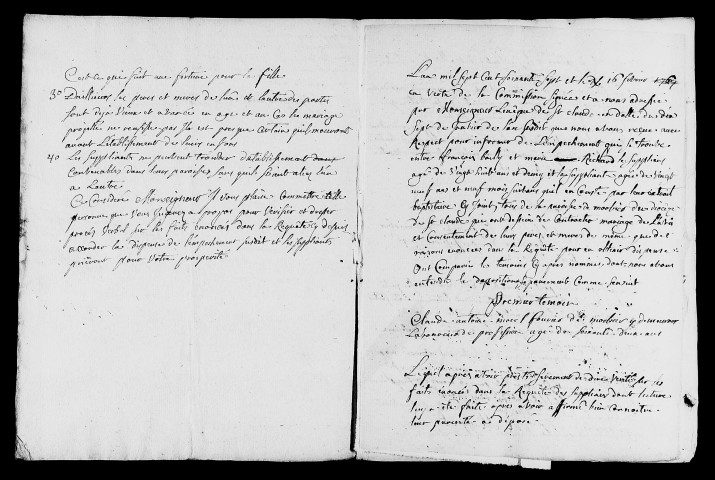 C'est ce qui fait une fortune pour la fille
3o D'ailleurs les peres et meres de l'une et l'autre des parties
sont deja vieux et avancés en age et au cas le mariage
projetté ne reussisse pas il est presque certain qu'ils mourront
avant l'etablissement de leurs enfans
4o Les suppliants ne peuvent trouver d'etablissement
convenables dans leur paroisse sans qu'ils soient alliés l'un
a l'autre
Ce Consideré Monseigneur Il vous plaise commettre telle
personne que vous jugerez a propos pour verifier et dresser
procès verbal sur les faits enoncés dans la Requete et depuis
accorder la dispense de l'empechement susdit et les suppliants
prieront pour votre prosperité
L'an mil sept cent soixante sept et le 16 fevrier
en vertu de la Commission signée et a nous adressée
par Monseigneur L'evêque de St claude en datte du dix
sept de janvier de l'an susdit que nous avons recue avec
Respect pour informer de l'empechement qui se trouve
entre françois bailly et marie Richard les supplians
agé de vingt huit ans et demy et la suppliante agée de vingt
neuf ans et neuf mois suivant qu'il en Conste par leur extrait
baptistaire et sont tous de la paroisse de morbier du diocese
de St claude qui ont dessein de Contracter mariage de l'avis
et Consentement de leurs peres et meres de meme que des
raisons enoncées dans la Requete pour en obtenir dispense
Ont Comparu les temoins cy apres nommés dont nous avons
entendu les depositions separement Comme s'ensuit
Premier temoin
Claude antoine morel fourrier de morbier y demeurant
Laboureur de profession agé de soixante deux ans
Lequel apres avoir preté serement de dire verité sur les
faits enoncés dans la Requete des supplians dont lecture
luy a eté faite apres avoir affirmé bien connoitre
leur parenté a deposé